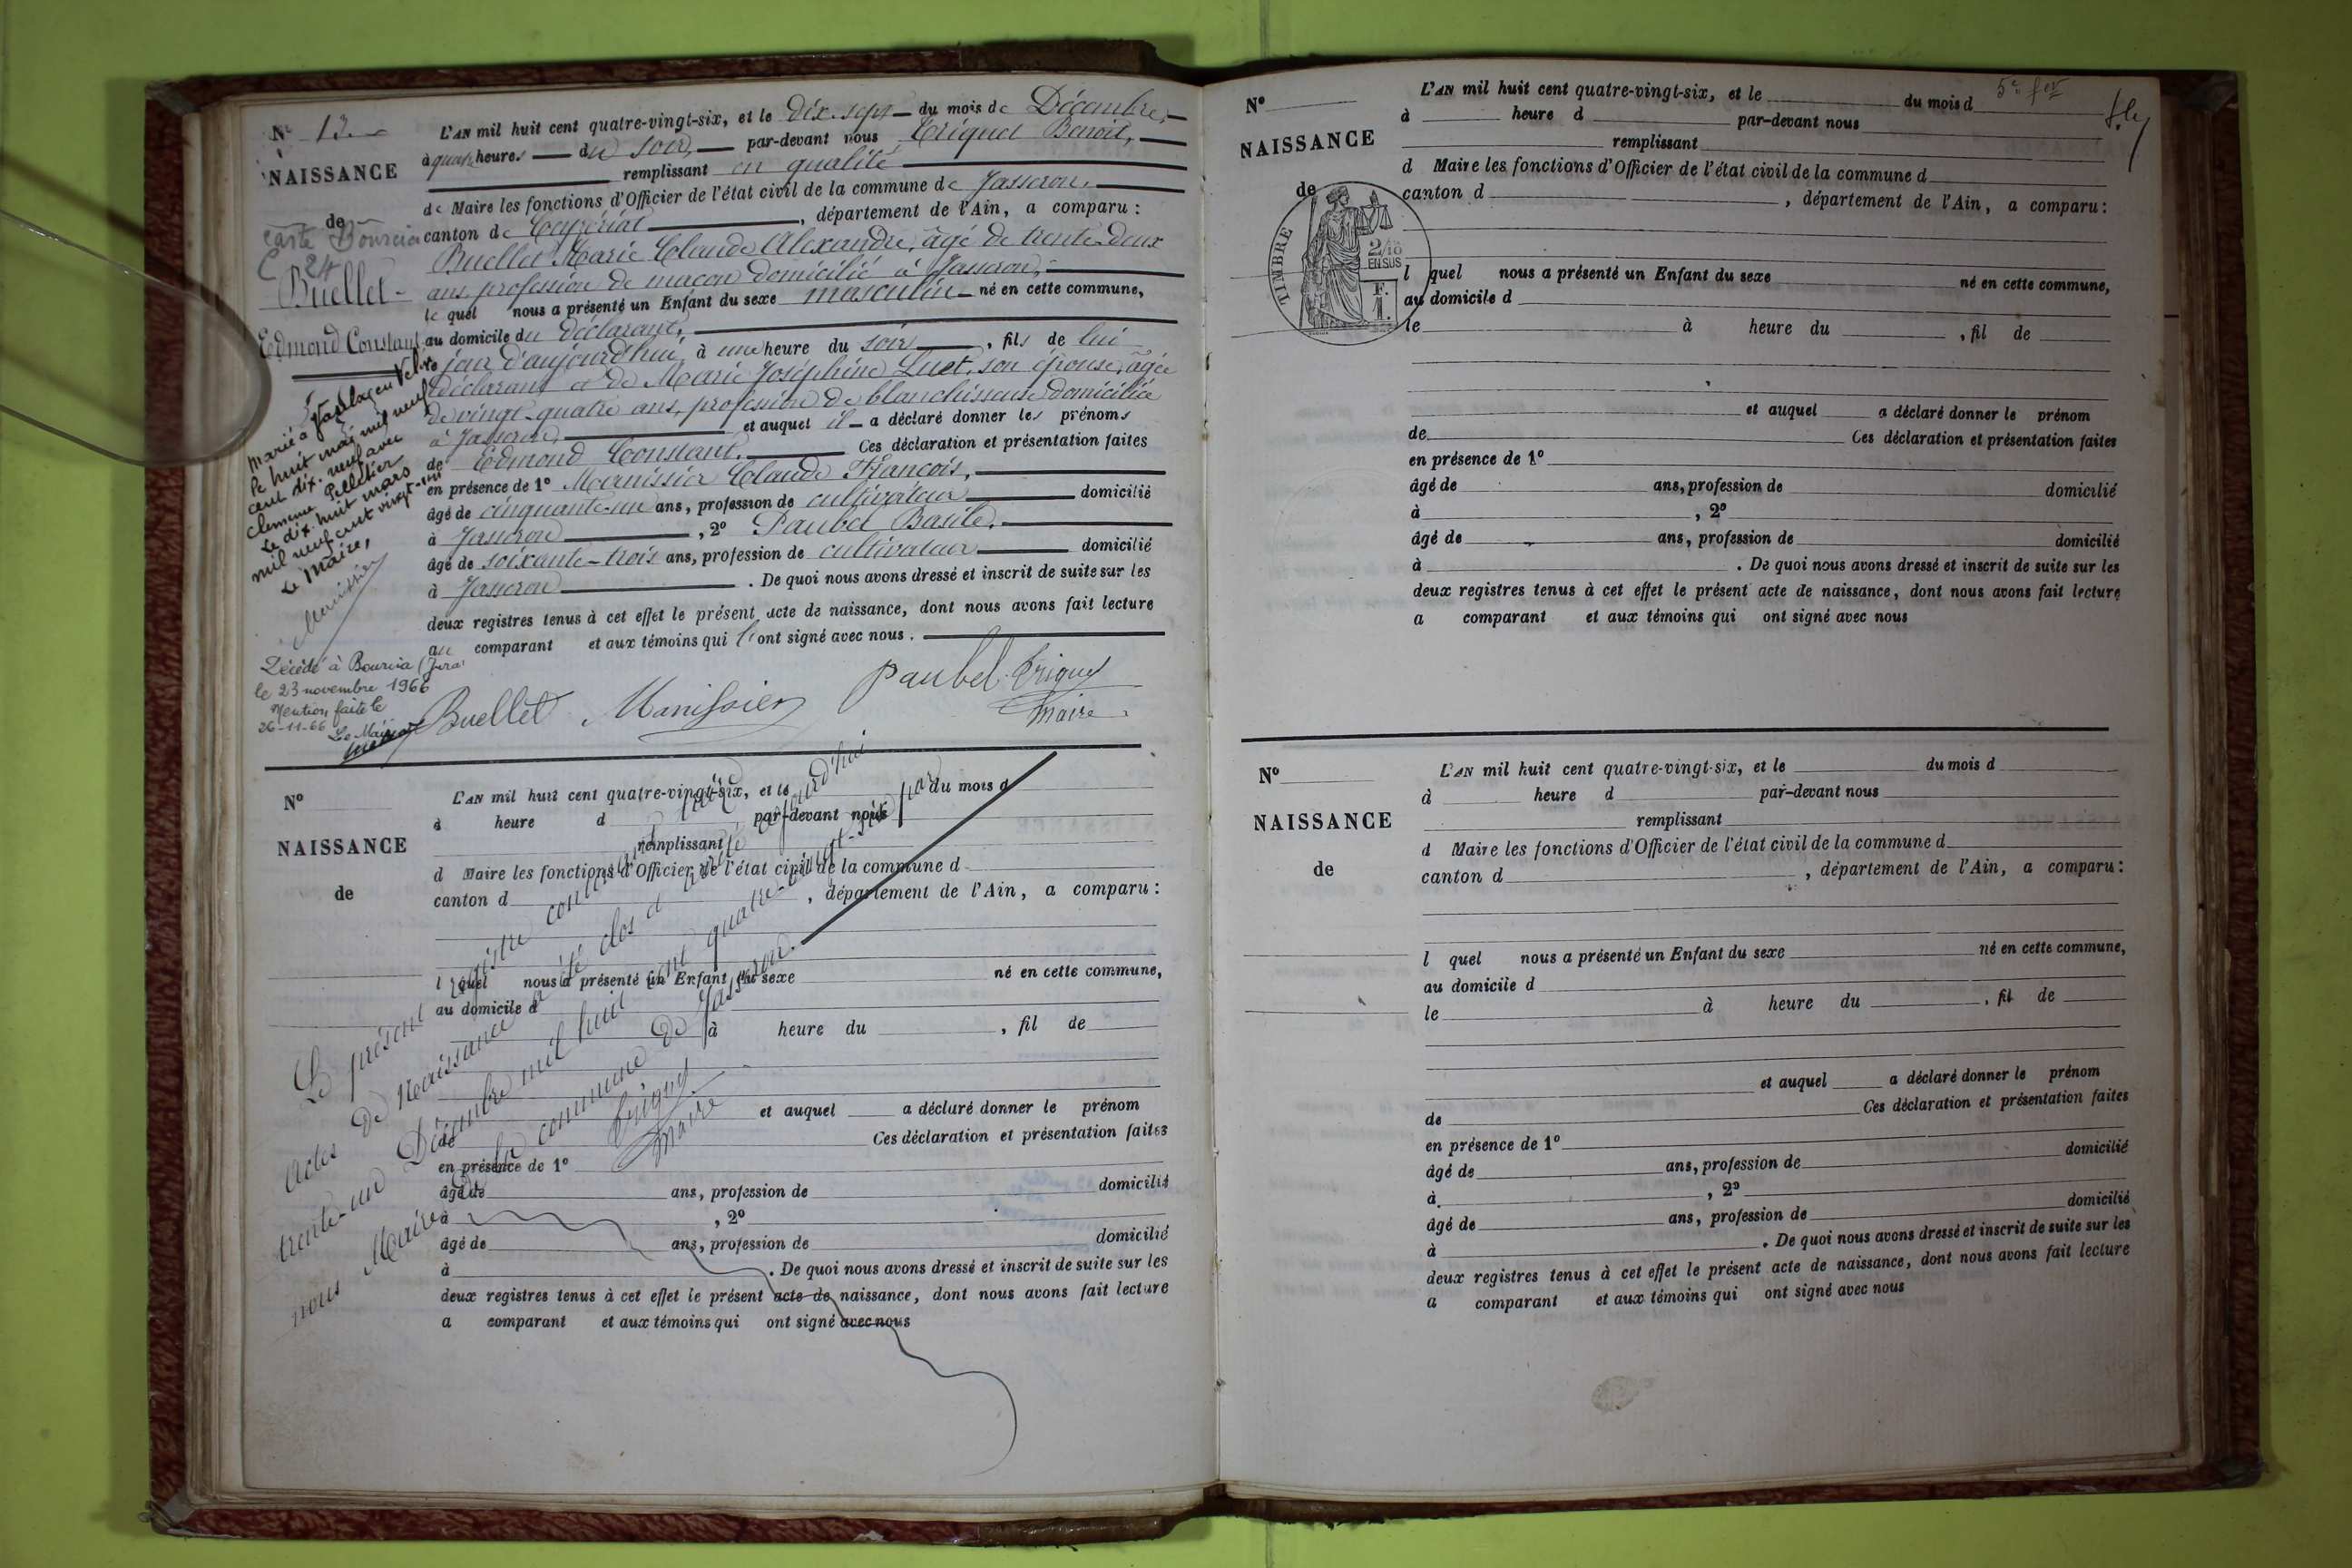 N° 13.
NAISSANCE
de
Carte Bourcia
C 24
Buellet
Edmond Constant
L'AN mil huit cent quatre-vingt-six, et le dix-sept du mois de Décembre,
à quatre heures du soir, par-devant nous Triquet Benoit,
remplissant en qualité
de Maire les fonctions d'Officier de l'état civil de la commune de Jasseron,
canton de Ceyzériat, département de l'Ain, a comparu :
Buellet Marie Claude Alexandre, âgé de trente-deux
ans profession de maçon domicilié à Jasseron,
lequel nous a présenté un Enfant du sexe masculin né en cette commune,
au domicile du déclarant,
jour d'aujourd'hui à une heure du soir, fils de lui
déclarant et de Marie Joséphine Luet, son épouse, âgée
de vingt-quatre ans, profession de blanchisseuse domiciliée
à Jasseron, et auquel il a déclaré donner les prénoms
de Edmond Constant. Ces déclaration et présentation faites
en présence de 1° Manissier Claude François,
âgé de cinquante-un ans, profession de cultivateur domicilié
à Jasseron, 2° Paubel Basile,
âgé de soixante-trois ans, profession de cultivateur domicilié
à Jasseron. De quoi nous avons dressé et inscrit de suite sur les
deux registres tenus à cet effet le présent acte de naissance, dont nous avons fait lecture
au comparant et aux témoins qui l'ont signé avec nous.
Marié à
le huit mai mil neuf
cent dix-neuf avec
Pelletier
Le dix-huit mars
mil neuf cent vingt-
Le Maire,
Décédé à Bourcia (Jura)
le 23 novembre 1966
Mention faite le
26-11-66 Le Maire
Buellet Manissier Paubel Triquet
Maire
N°
NAISSANCE
de
L'AN mil huit cent quatre-vingt-six, et le du mois d
à heure d par-devant nous
remplissant
d Maire les fonctions d'Officier de l'état civil de la commune d
canton d , département de l'Ain, a comparu :
l quel nous a présenté un Enfant du sexe né en cette commune,
au domicile d
à heure du , fil de
et auquel a déclaré donner le prénom
de Ces déclaration et présentation faites
en présence de 1°
âgé de ans, profession de domicilié
à , 2°
âgé de ans, profession de domicilié
à . De quoi nous avons dressé et inscrit de suite sur les
deux registres tenus à cet effet le présent acte de naissance, dont nous avons fait lecture
a comparant et aux témoins qui ont signé avec nous
Le présent registre
actes de Naissance a été clos et aujourd'hui
trente-un Décembre mil huit cent quatre-vingt-six par
nous Maire de la commune de Jasseron.
Triquet
Maire
5e fer
N°
NAISSANCE
de
TIMBRE
2/10
EN SUS
F.
1.
L'AN mil huit cent quatre-vingt-six, et le du mois d
à heure d par-devant nous
remplissant
d Maire les fonctions d'Officier de l'état civil de la commune d
canton d , département de l'Ain, a comparu :
l quel nous a présenté un Enfant du sexe né en cette commune,
au domicile d
le à heure du , fil de
et auquel a déclaré donner le prénom
de Ces déclaration et présentation faites
en présence de 1°
âgé de ans, profession de domicilié
à , 2°
âgé de ans, profession de domicilié
à . De quoi nous avons dressé et inscrit de suite sur les
deux registres tenus à cet effet le présent acte de naissance, dont nous avons fait lecture
a comparant et aux témoins qui ont signé avec nous
N°
NAISSANCE
de
L'AN mil huit cent quatre-vingt-six, et le du mois d
à heure d par-devant nous
remplissant
d Maire les fonctions d'Officier de l'état civil de la commune d
canton d , département de l'Ain, a comparu :
l quel nous a présenté un Enfant du sexe né en cette commune,
au domicile d
le à heure du , fil de
et auquel a déclaré donner le prénom
de Ces déclaration et présentation faites
en présence de 1°
âgé de ans, profession de domicilié
à , 2°
âgé de ans, profession de domicilié
à . De quoi nous avons dressé et inscrit de suite sur les
deux registres tenus à cet effet le présent acte de naissance, dont nous avons fait lecture
a comparant et aux témoins qui ont signé avec nous